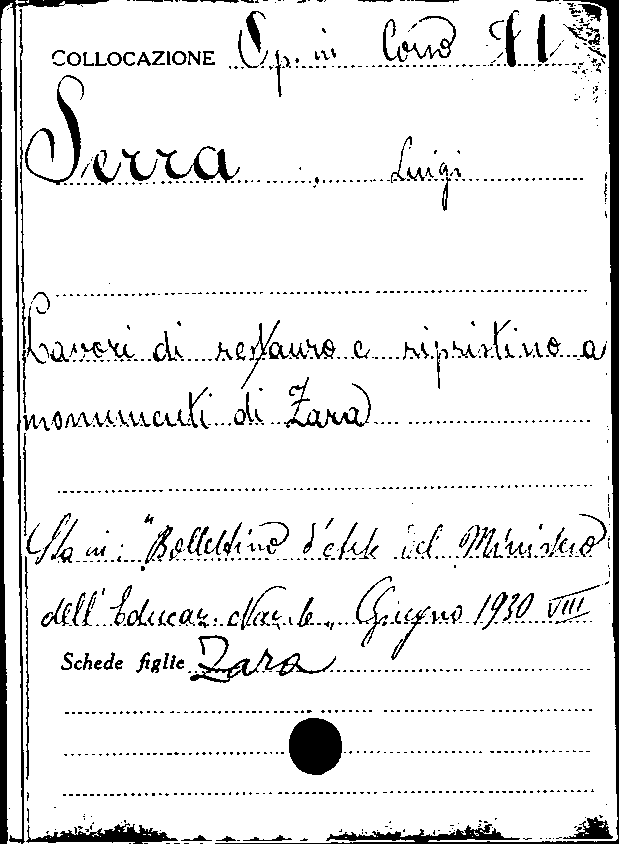 COLLOCAZIONE Op. in Corso 71
Serra, Luigi
Lavori di restauro e ripristino a
monumenti di Zara
Sta in: "Bollettino d'arte del Ministero
dell'Educaz. Naz.le„ Giugno 1930 VIII
Schede figlie Zara